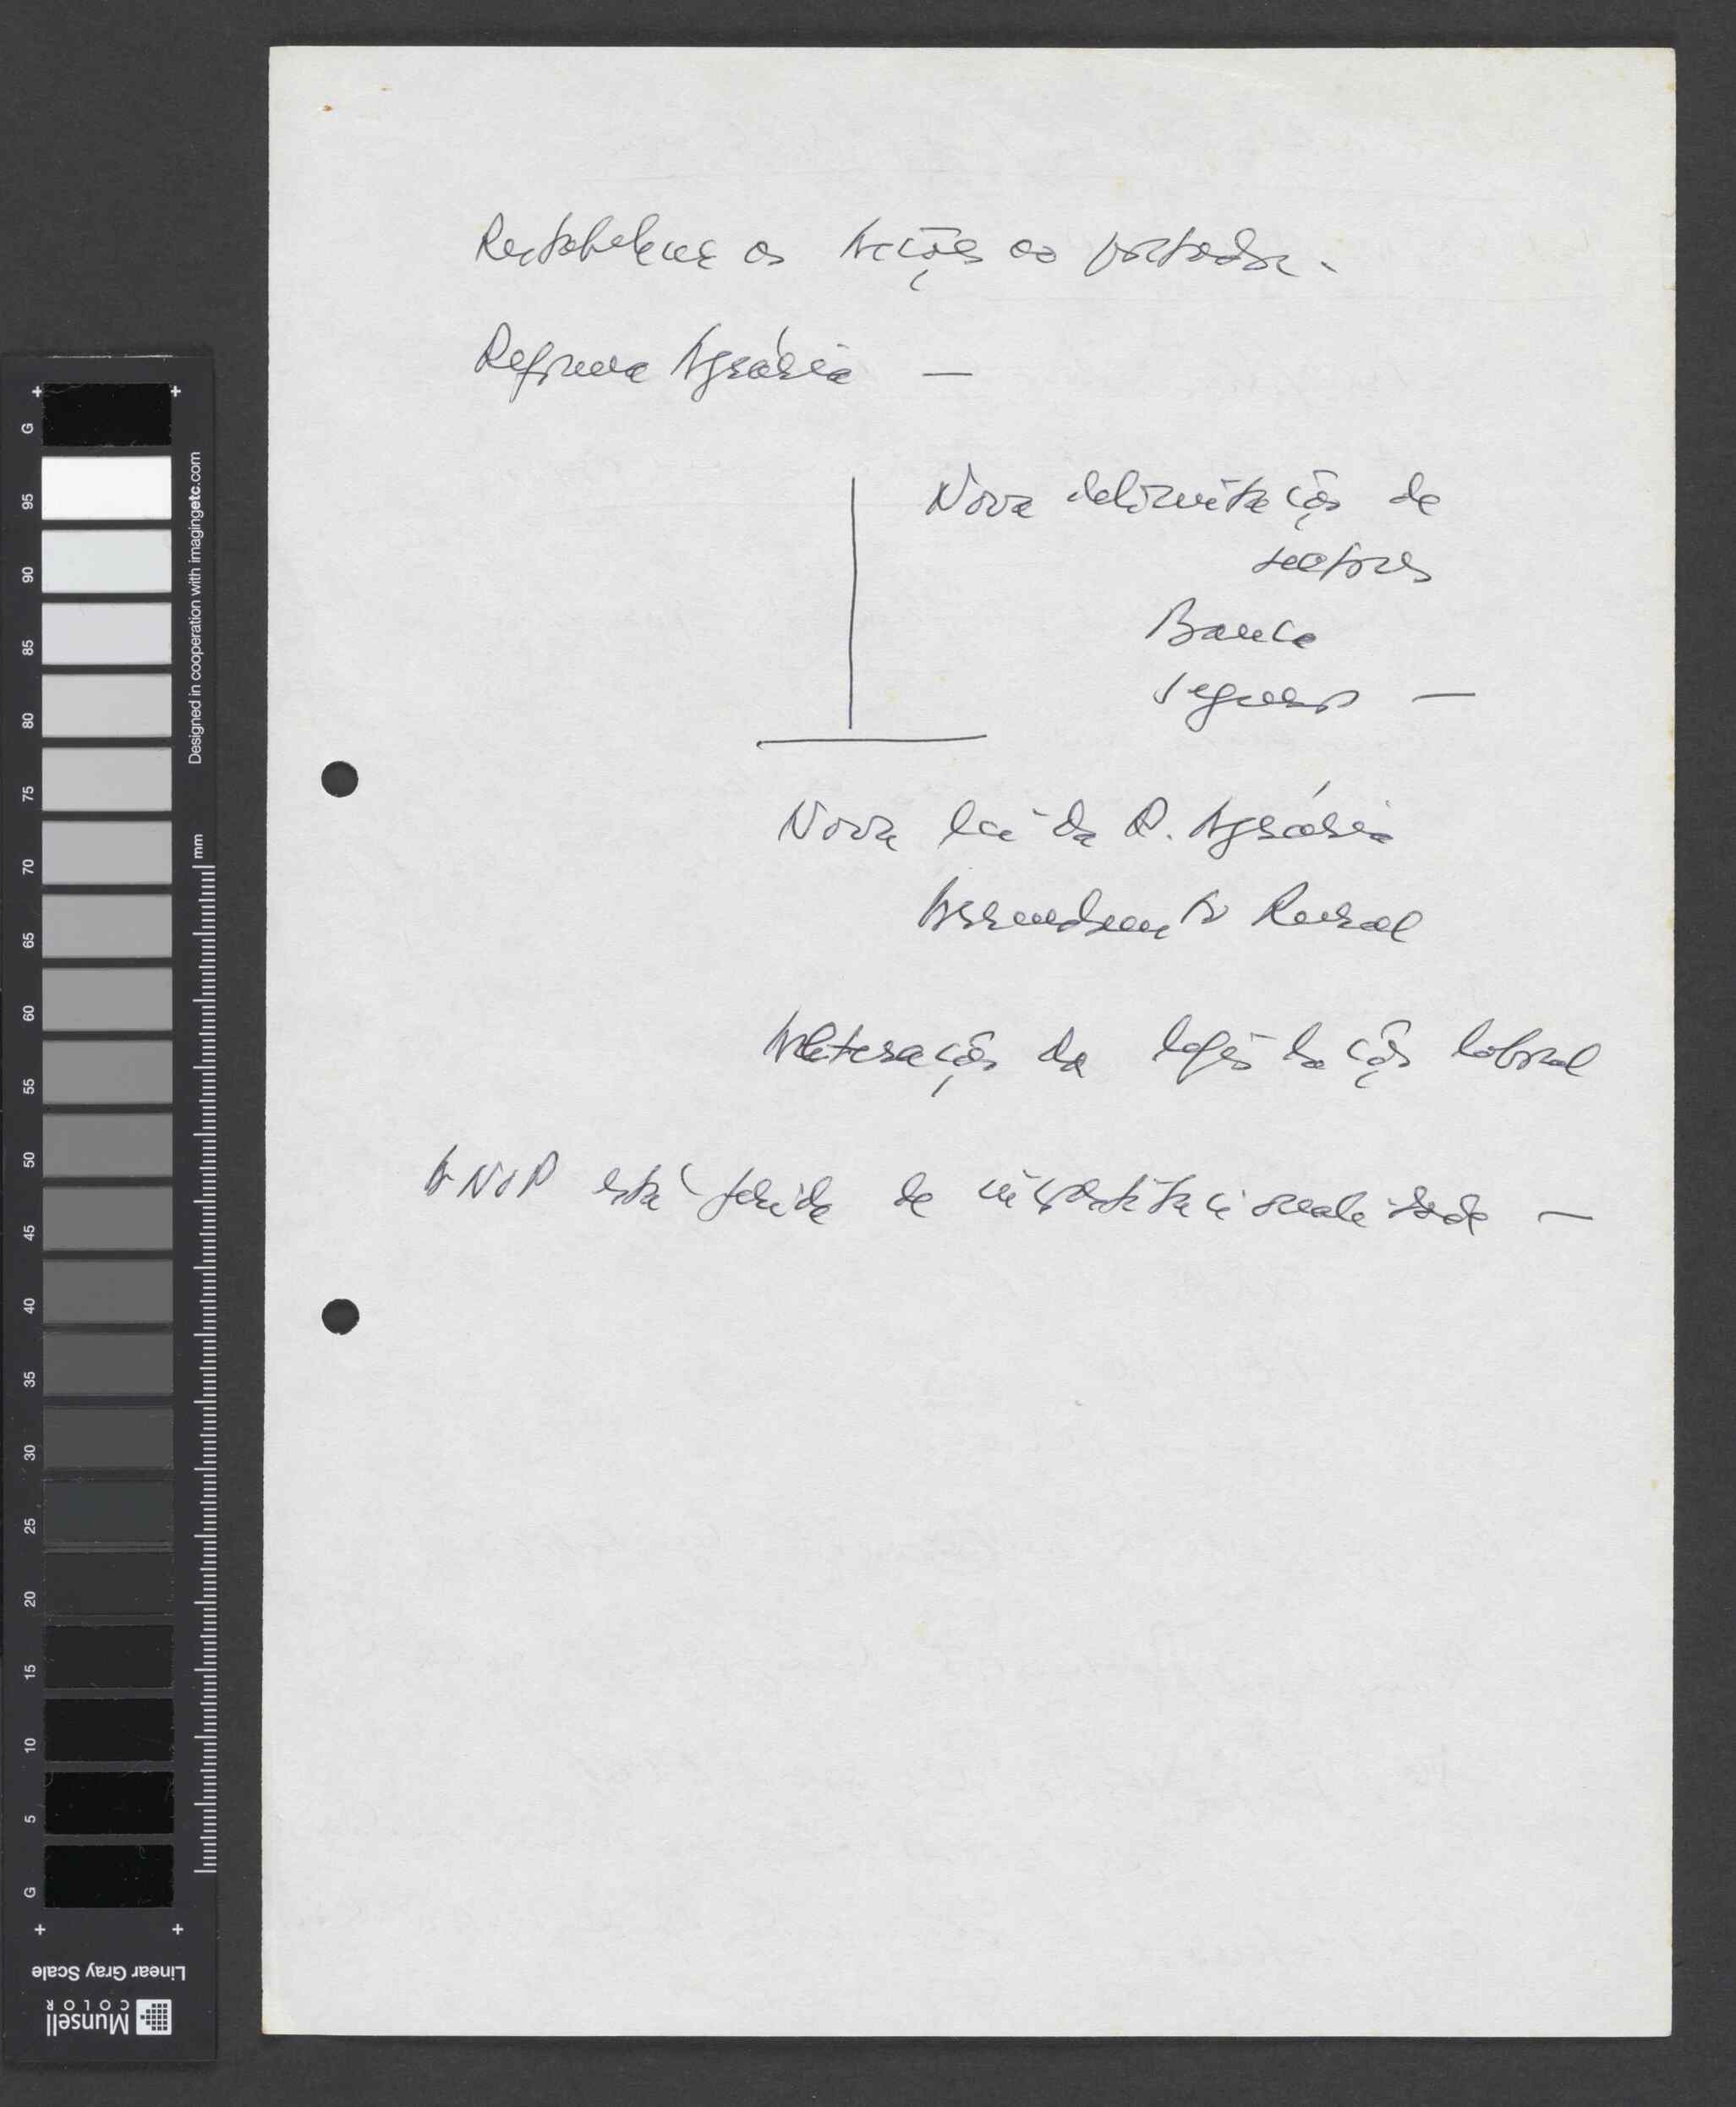 Restabelecer as Acções ao portador.
Reforma Agrária —
Nova delimitação de
sectores
Banca
Seguros —
Nova lei da R. Agrária
Arrendamento Rural
Alteração da legislação laboral
A NOP está ferida de inconstitucionalidade —
G
95
90
85
80
75
70
65
60
55
50
45
40
35
30
25
20
15
10
5
G
Designed in cooperation with imagingetc.com
mm
Linear Gray Scale
Munsell
COLOR